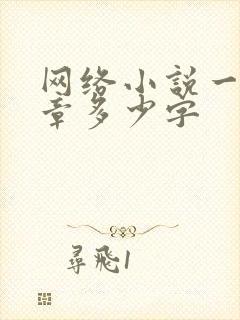 网络小説一
章多少字
尋飛1